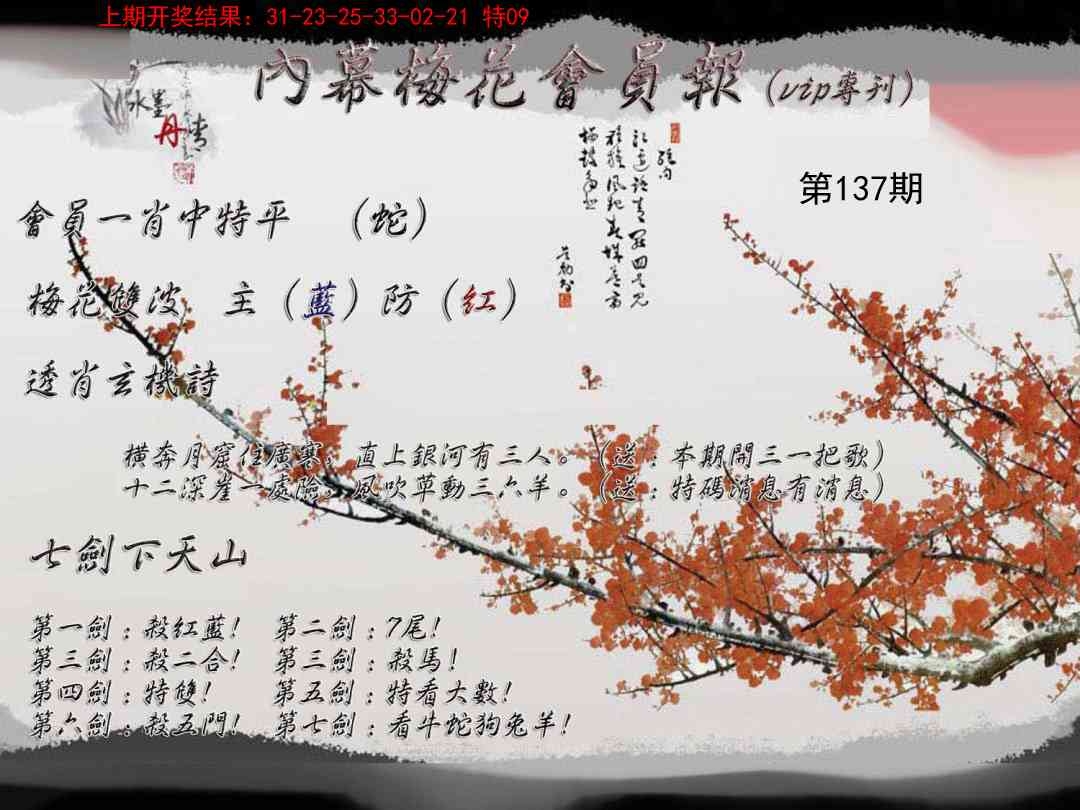 上期开奖结果：31-23-25-33-02-21 特09
內幕梅花會員報（vip專刊）
水墨
丹青
第137期
會員一肖中特平 （蛇）
梅花雙波 主（藍）防（红）
透肖玄機詩
橫奔月窟住廣寒，直上銀河有三人。（送：本期開三一把歌）
十二深崖一處險，風吹草動三六羊。（送：特碼消息有消息）
七劍下天山
第一劍：殺红藍！ 第二劍：7尾！
第三劍：殺二合！ 第三劍：殺馬！
第四劍：特雙！ 第五劍：特看大數！
第六劍：殺五門！ 第七劍：看牛蛇狗兔羊！